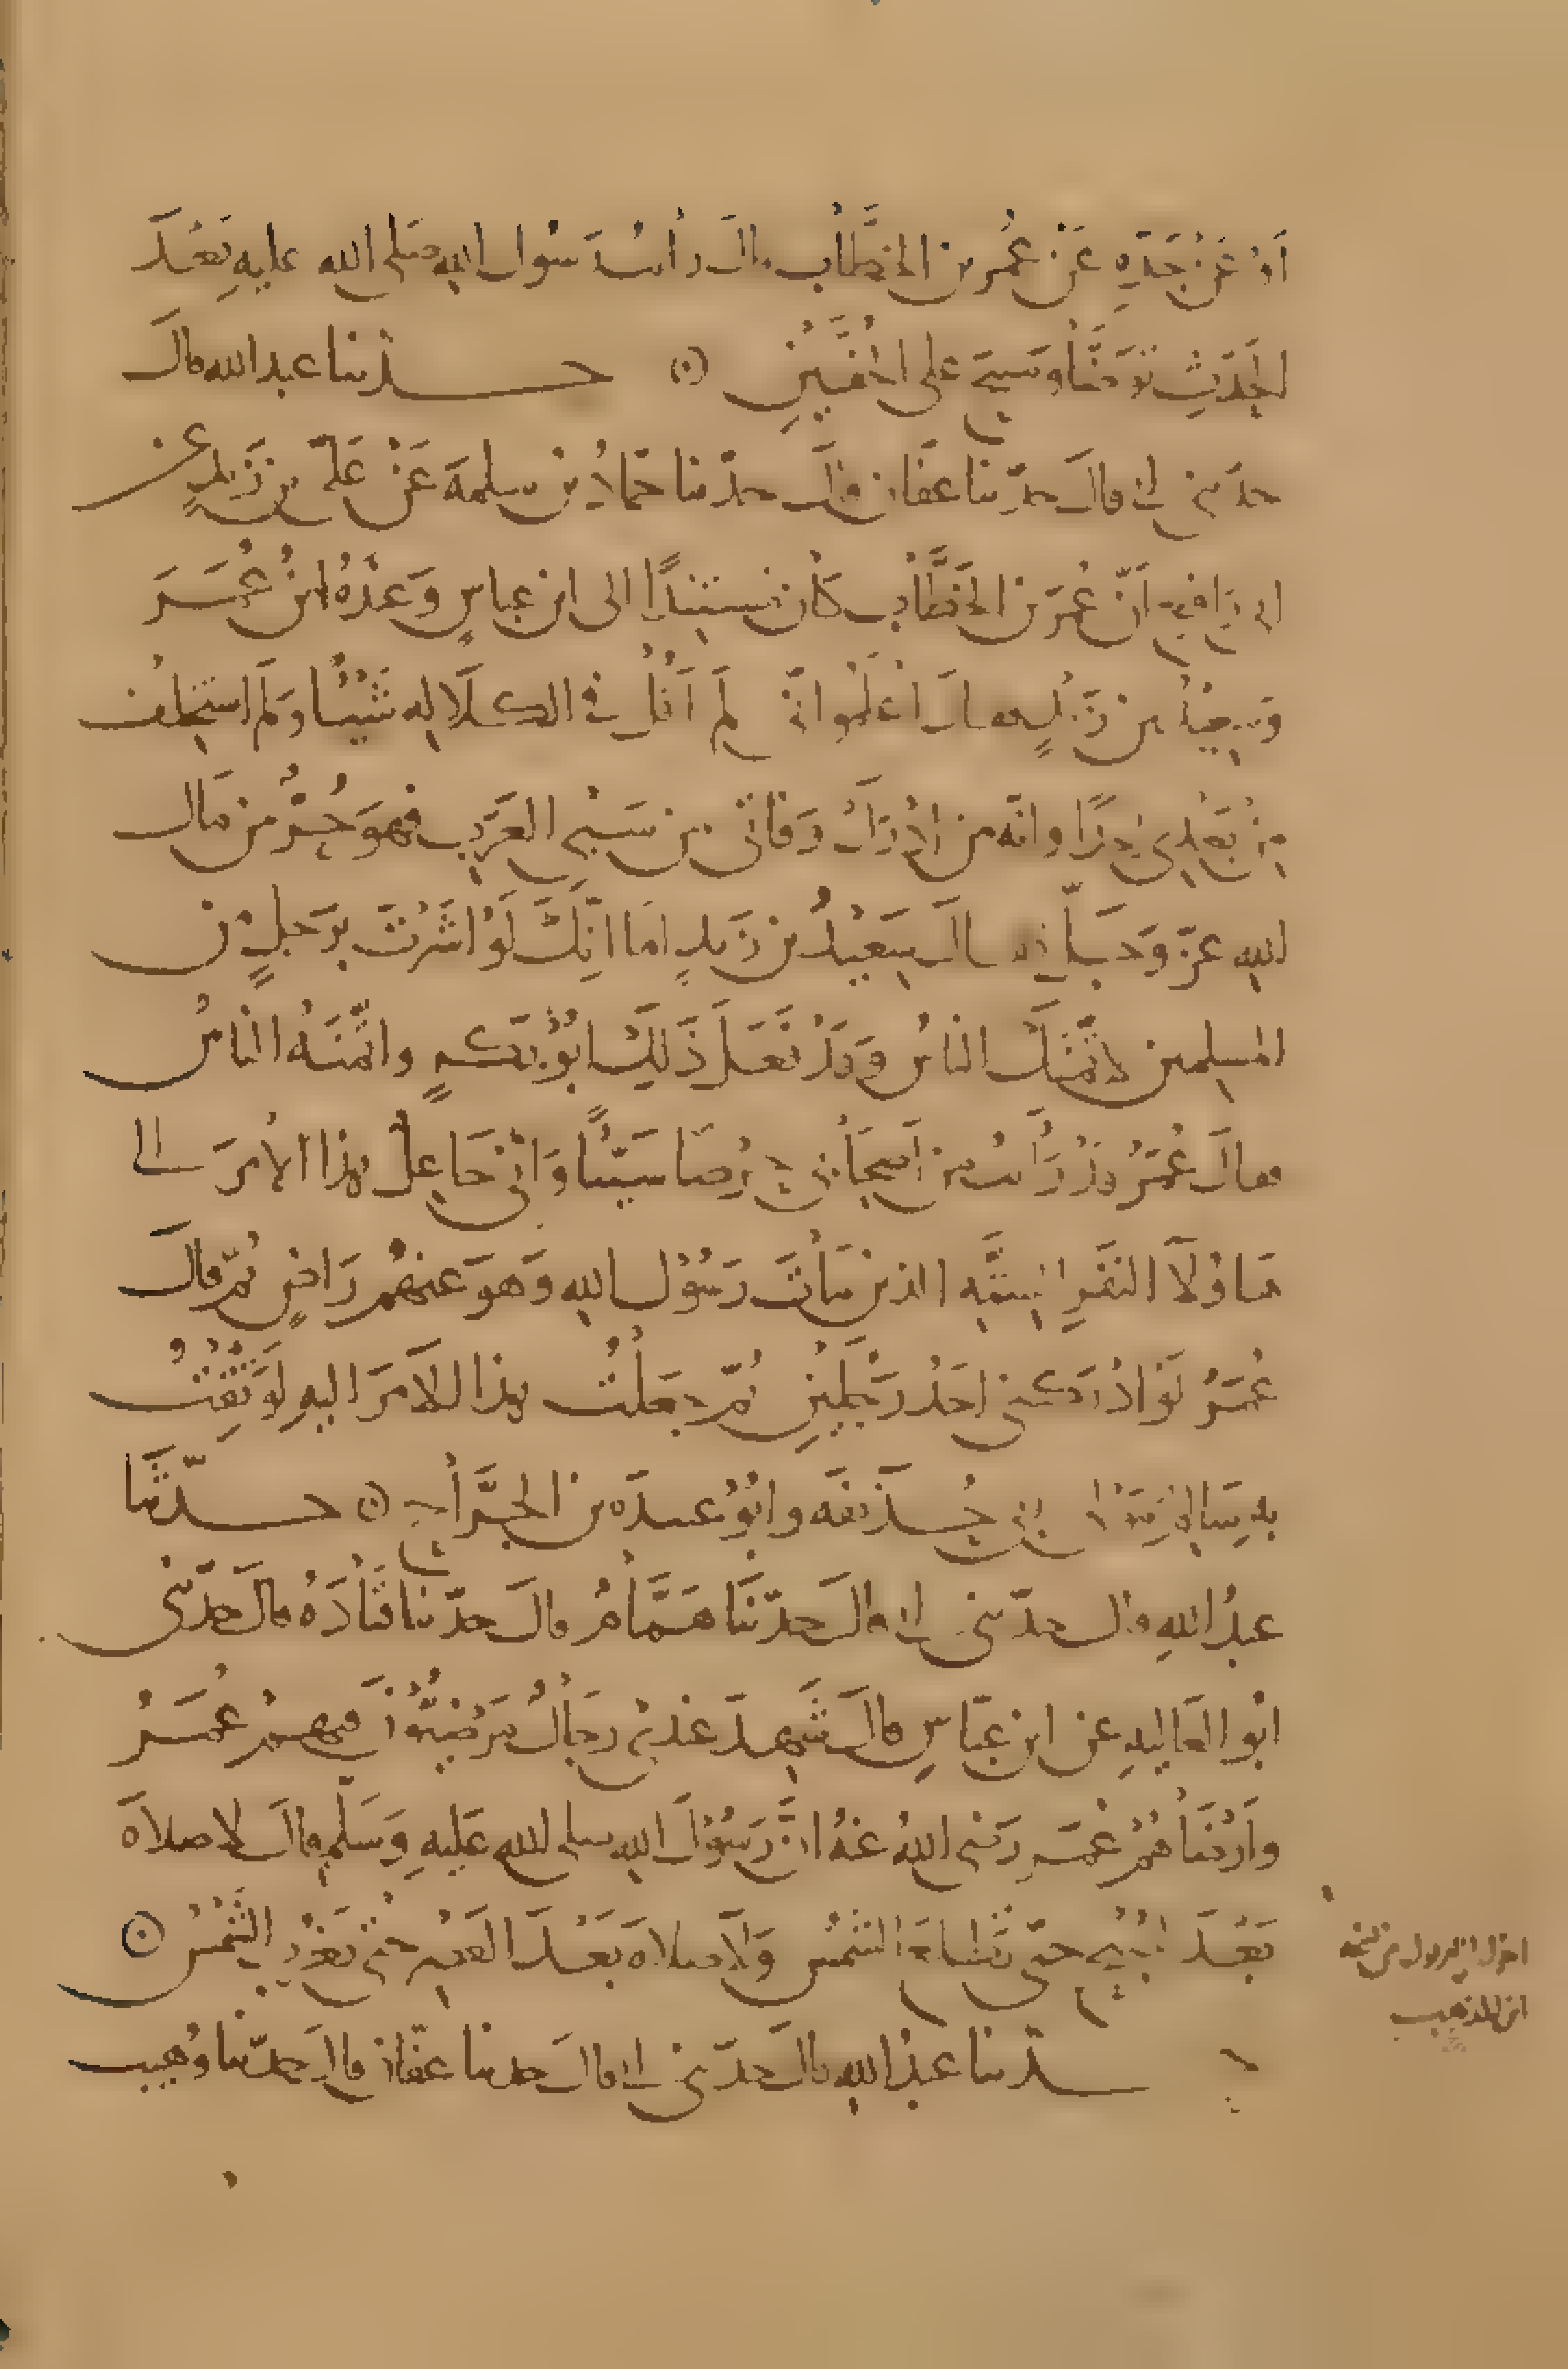 أو عَنْ جَدِّهِ عَنْ عُمَر بن الخطَّاب قال رأيت رَسُول الله صلى الله عليهِ بَعْدَ
الحَدَثِ تَوَضَّأ ومَسَحَ على الخُفَّيْنِ ۞ حدثنا عبد الله قال
حدثني أبي قالَ حدّثنا عفان قالَ حدّثنا حمّادُ بن سلمة عَنْ عَليّ بن زَيدٍ عن
أبي رَافعٍ أنّ عُمَرَ بن الخطَّاب كان مُستنِدًا إلى ابن عباسٍ وَعندَهُ ابنُ عُمَرَ
وَسَعِيْدُ بن زَيْدٍ فقال اعْلَمُوا أنّي لَم أقُلْ في الكَلَالةِ شَيْئًا وَلَم أستخلِفْ
مِنْ بَعْدِي أحدًا وانّه من أدْرَكَ وَفَاتي من سَبْيِ العَرَبِ فهوَ حُرٌّ من مَال
الله عزّ وَجلّ فقال سَعِيْدُ بن زَيدٍ أمَا انّكَ لَوْ أشَرْتَ برَجلٍ من
المسلمين لائتمنَكَ الناسُ وَقَدْ فَعَلَ ذَلِكَ أبُوْ بَكرٍ وائتمنَهُ الناسُ
فقالَ عُمَرُ قدْ رَأيتُ من أصحَابي حِرْصًا سَيّئًا وَإنّي جَاعِلٌ هذا الأمرَ إلى
هَاؤُلَآ النفَرِ الستّة الذين مَاتَ رَسُوْل الله وَهوَ عنهُم رَاضٍ ثمّ قالَ
عُمَرُ لَوْ ادْرَكني احَدُ رَجُلَيْنِ ثمّ جعلتُ هذا الأمرَ اليهِ لَوَثِقْتُ
به سَالم مَوْلى أبي حُذَيفة وأبُوْ عبيدة بن الجرَّاح ۞ حدّثنا
عبدُ اللهِ قال حدّثني أبي قالَ حدّثنا عَفَّان قال حدّثنا هَمَّامُ قالَ حدّثنا قتادَةُ قالَ حدّثني
أبُو العَاليةِ عن ابن عبّاسٍ قالَ شَهِدَ عندي رجَالٌ مَرْضيُّوْنَ فيهمْ عُمَرُ
وَأرْضَاهُمْ عُمَرُ رَضيَ اللهُ عنهُ انَّ رَسُوْلَ الله صلى الله عَليهِ وَسَلّم قالَ لا صلاةَ
بَعْدَ الصُّبْحِ حتّى تَطلعَ الشّمسُ وَلَا صلاةَ بَعْدَ العَصرِ حتّى تغرُبَ الشّمْسُ ۞
حدّثنا عبدُ اللهِ قالَ حدّثني أبي قالَ حدثنا عفّان قالَ حدّثنا وُهَيب